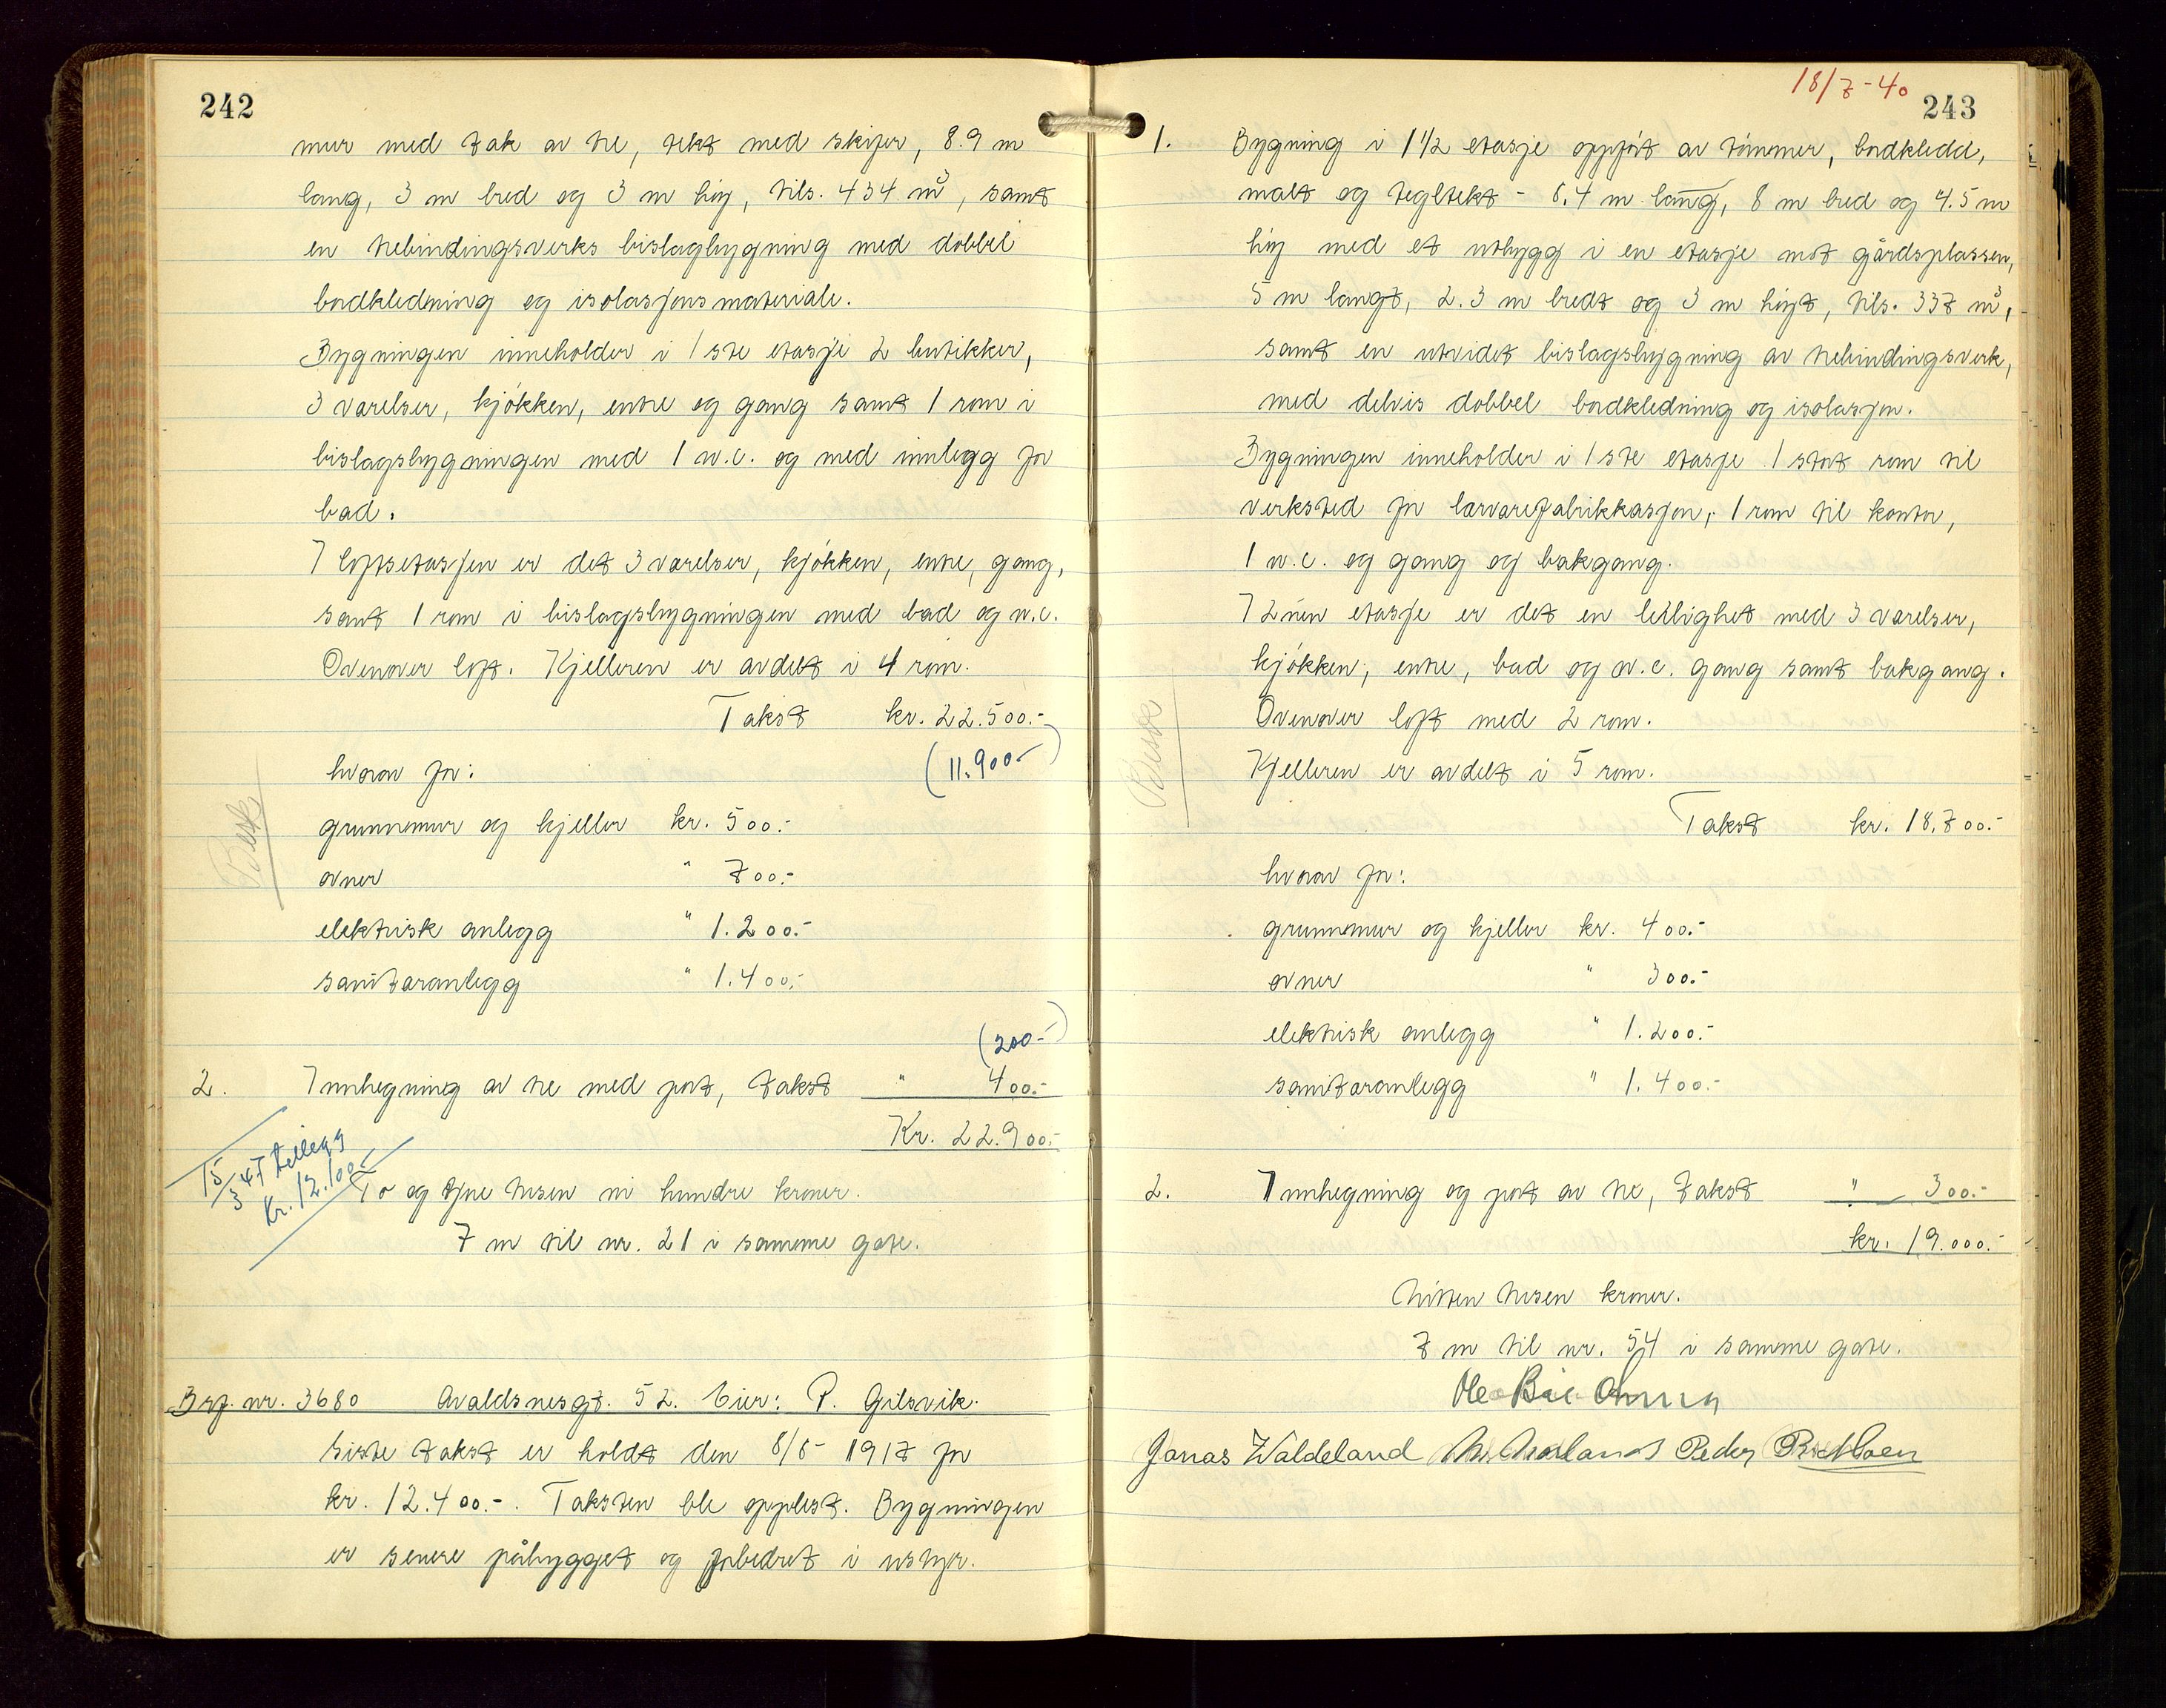 242
mur med tak av tre, tekt med skifer, 8.9 m
lang, 3 m bred og 3 m høy, tils. 434 m³, samt
en trebindingsverks bislagbygning med dobbel
bordkledning og isolasjonsmateriale.
Bygningen inneholder i 1ste etasje 2 butikker,
3 værelser, kjøkken, entre og gang samt 1 rom i
bislagsbygningen med 1 w.c. og med innlegg for
bad.
I loftsetasjen er det 3 værelser, kjøkken, entre, gang,
samt 1 rom i bislagsbygningen med bad og w.c.
Ovenover loft. Kjelleren er avdelt i 4 rom.
Takst kr. 22.500.-
(11.900.-)
hvorav for:
grunnmur og kjeller kr. 500.-
ovner " 700.-
elektrisk anlegg " 1.200.-
sanitæranlegg " 1.400.-
(200.-)
2. Innhegning av tre med port, takst " 400.-
Kr. 22.900.-
15/3 47 tillegg
Kr. 12.100.-
To og tyve tusen ni hundre kroner.
7 m til nr. 21 i samme gate.
Brf. nr. 3680 Avaldsnesgt. 52. Eier: P. Gilsvik.
Siste takst er holdt den 8/5- 1917 for
kr. 12.400.-. Taksten ble opplest. Bygningen
er senere påbygget og forbedret i utstyr.
18/7-40
243
1. Bygning i 1 1/2 etasje oppført av tømmer, bordkledd,
malt og tegltekt - 8,4 m lang, 8 m bred og 4.5 m
høy med et utbygg i en etasje mot gårdsplassen,
5 m langt, 2.3 m bredt og 3 m høyt, tils. 337 m³,
samt en utvidet bislagsbygning av trebindingsverk,
med delvis dobbel bordkledning og isolasjon.
Bygningen inneholder i 1ste etasje 1 stort rom til
verksted for lærvarefabrikkasjon, 1 rom til kontor,
1 w.c. og gang og bakgang.
I 2nen etasje er det en leilighet med 3 værelser,
kjøkken, entre, bad og w.c. gang samt bakgang.
Ovenover loft med 2 rom.
Kjelleren er avdelt i 5 rom.
Takst kr. 18.700.-
hvorav for:
grunnmur og kjeller kr. 400.-
ovner " 300.-
elektrisk anlegg " 1.200.-
sanitæranlegg " 1.400.-
2. Innhegning og port av tre, takst " 300.-
kr. 19.000.-
Nitten tusen kroner.
7 m til nr. 54 i samme gate.
Jonas Waldeland Peder